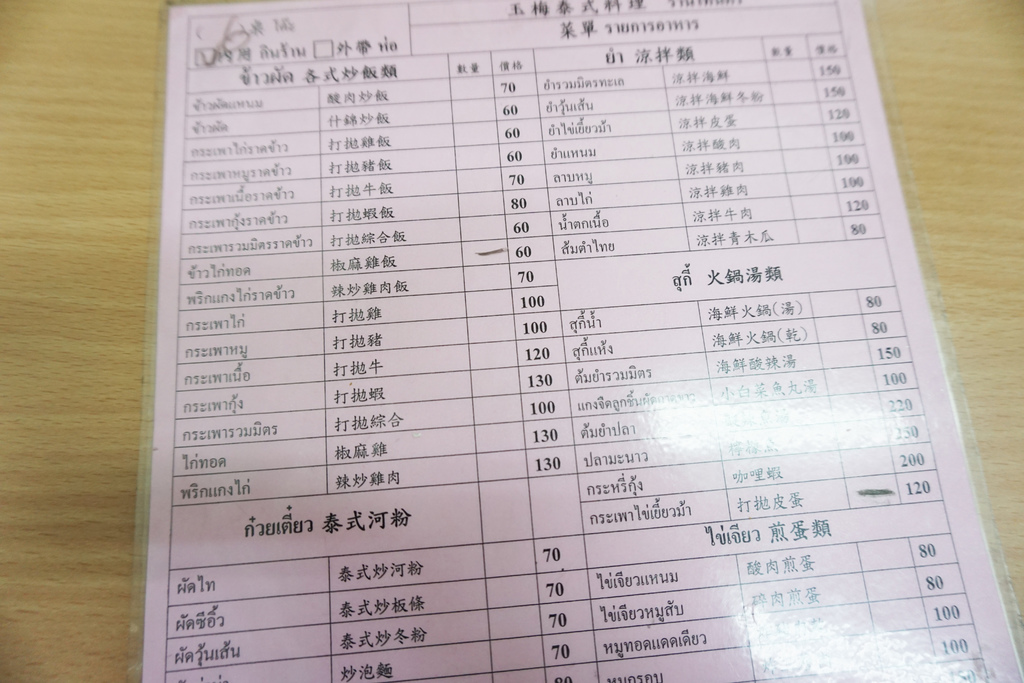 玉梅泰式料理
菜單 รายการอาหาร
กินร้าน 外帶 ห่อ
ข้าวผัด 各式炒飯類 數量 價格
ข้าวผัดแหนม 酸肉炒飯 70
ข้าวผัด 什錦炒飯 60
กระเพาไก่ราดข้าว 打拋雞飯 60
กระเพาหมูราดข้าว 打拋豬飯 60
กระเพาเนื้อราดข้าว 打拋牛飯 70
กระเพากุ้งราดข้าว 打拋蝦飯 80
กระเพารวมมิตรราดข้าว 打拋綜合飯 60
ข้าวไก่ทอด 椒麻雞飯 60
พริกแกงไก่ราดข้าว 辣炒雞肉飯 70
กระเพาไก่ 打拋雞 100
กระเพาหมู 打拋豬 100
กระเพาเนื้อ 打拋牛 120
กระเพากุ้ง 打拋蝦 130
กระเพารวมมิตร 打拋綜合 100
ไก่ทอด 椒麻雞 130
พริกแกงไก่ 辣炒雞肉 130
ก๋วยเตี๋ยว 泰式河粉
ผัดไท 泰式炒河粉 70
ผัดซีอิ๊ว 泰式炒板條 70
ผัดวุ้นเส้น 泰式炒冬粉 70
炒泡麵 70
80
ยำ 涼拌類 數量 價格
ยำรวมมิตรทะเล 涼拌海鮮 150
ยำวุ้นเส้น 涼拌海鮮冬粉 150
ยำไข่เยี้ยวม้า 涼拌皮蛋 120
ยำแหนม 涼拌酸肉 100
ลาบหมู 涼拌豬肉 100
ลาบไก่ 涼拌雞肉 100
น้ำตกเนื้อ 涼拌牛肉 120
ส้มตำไทย 涼拌青木瓜 80
สุกี้ 火鍋湯類
สุกี้น้ำ 海鮮火鍋(湯) 80
สุกี้แห้ง 海鮮火鍋(乾) 80
ต้มยำรวมมิตร 海鮮酸辣湯 150
แกงจืดลูกชิ้น 小白菜魚丸湯 100
ต้มยำปลา 220
ปลามะนาว 檸檬魚 250
กระหรี่กุ้ง 咖哩蝦 200
กระเพาไข่เยี้ยวม้า 打拋皮蛋 120
ไข่เจียว 煎蛋類
ไข่เจียวแหนม 酸肉煎蛋 80
ไข่เจียวหมูสับ 碎肉煎蛋 80
หมูทอดแดดเดียว 100
หมูกรอบ 100